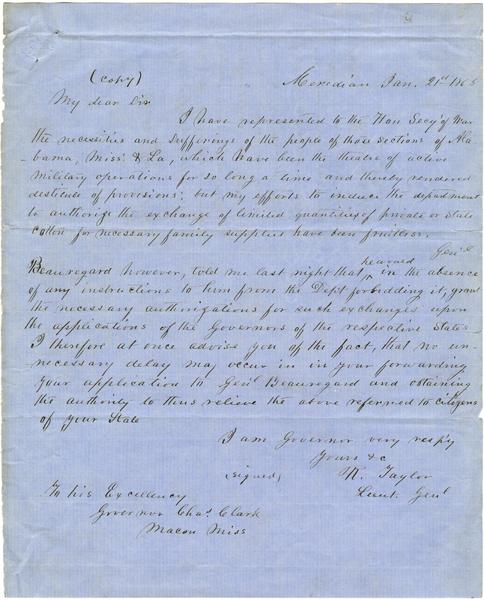 (copy)
Meridian Jan. 21st 1865
My dear Sir
I have represented to the Hon Secy of War
the necessities and sufferings of the people of those sections of Ala-
-bama, Miss. & La, which have been the theatre of active
military operations for so long a time and thereby rendered
destitute of provisions; but my efforts to induce the department
to authorize the exchange of limited quantities of private or State
cotton for necessary family supplies have been fruitless.
Genl
Beauregard however, told me last night that he would in the absence
of any instructions to him from the Dept forbidding it, grant
the necessary authorizations for such exchanges upon
the applications of the Governors of the respective States
I therefore at once advise you of the fact, that no un-
necessary delay may occur in in your forwarding
your application to Genl Beauregard and obtaining
the authority to thus relieve the above referred to citizens
of your State
I am Governor very resp'y
Yours &c
(signed) R. Taylor
Lieut. Genl
To his Excellency
Governor Chas. Clark
Macon Miss